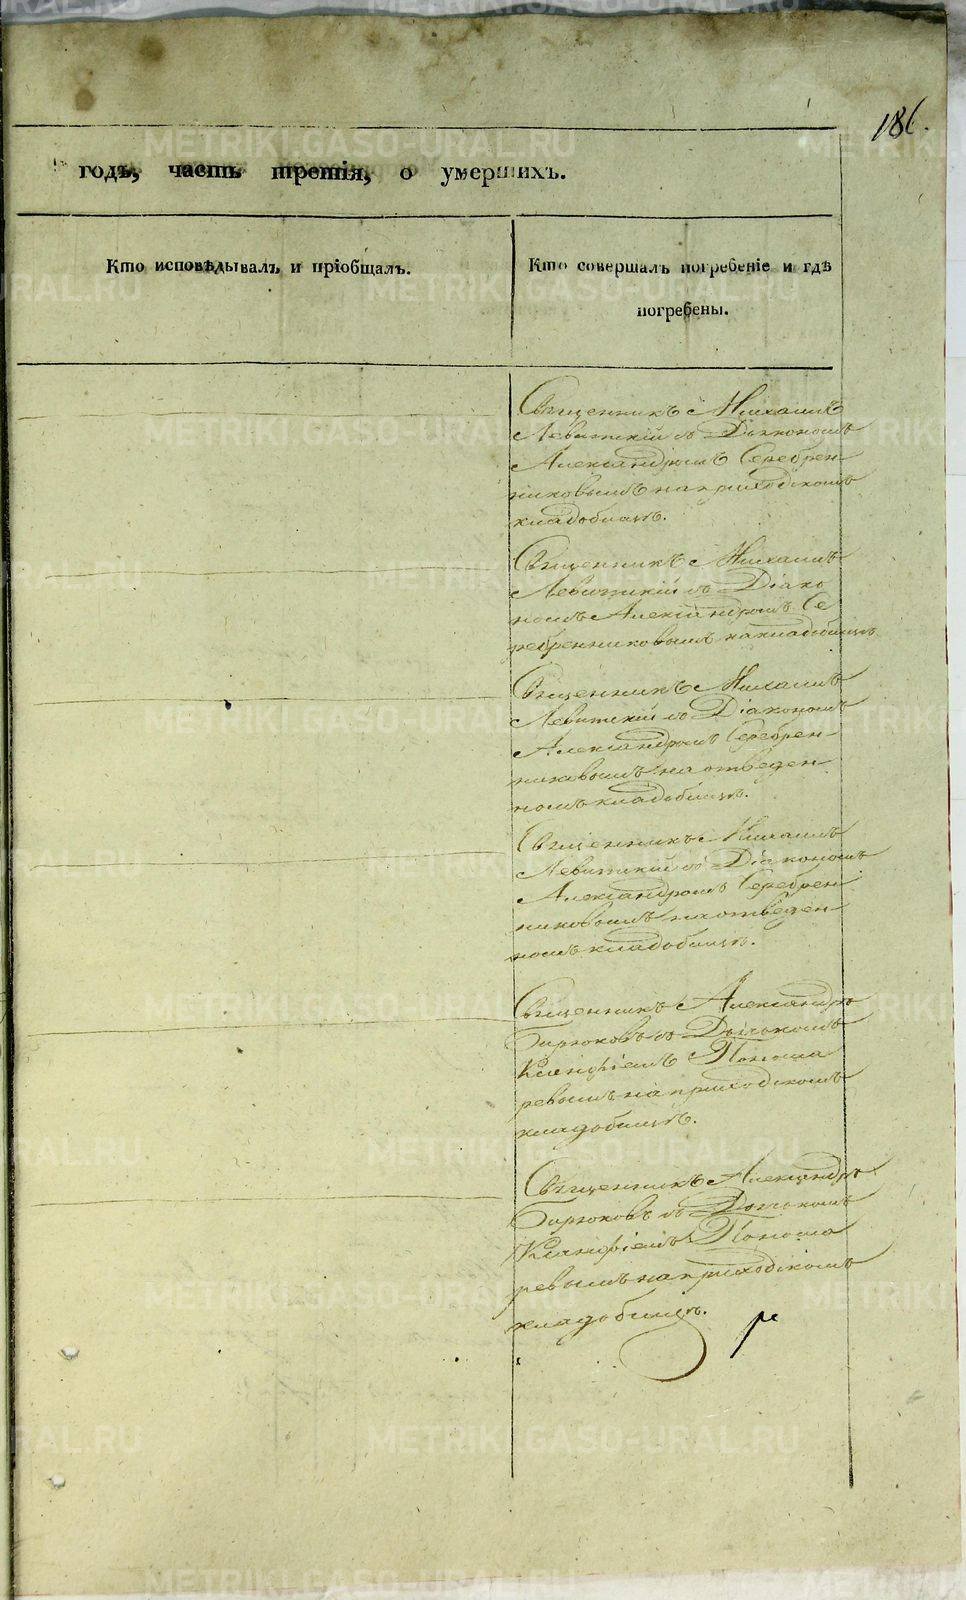 186.
годъ, часть третія, о умершихъ.
Кто исповѣдывалъ и пріобщалъ.
Кто совершалъ погребеніе и гдѣ
погребены.
Священникъ Михаилъ
Левитскій съ Діакономъ
Александромъ Серебрен-
никовымъ на приходскомъ
кладбищѣ.
Священникъ Михаилъ
Левитскій съ Діако
номъ Александромъ Се
ребренниковымъ на кладбищѣ
Священникъ Михаилъ
Левитскій съ Діакономъ
Александромъ Серебрен-
никовымъ на отведен
номъ кладбищѣ.
Священникъ Михаилъ
Левитскій съ Діакономъ
Александромъ Серебрен
никовымъ на отведен
номъ кладбищѣ.
Священникъ Александръ
Бирюковъ съ Дьячкомъ
Панома
ревымъ на приходскомъ
кладбищѣ.
Священникъ Александръ
Бирюковъ съ Дьячкомъ
Панома
ревымъ на приходскомъ
кладбищѣ.
METRIKI.GASO-URAL.RU